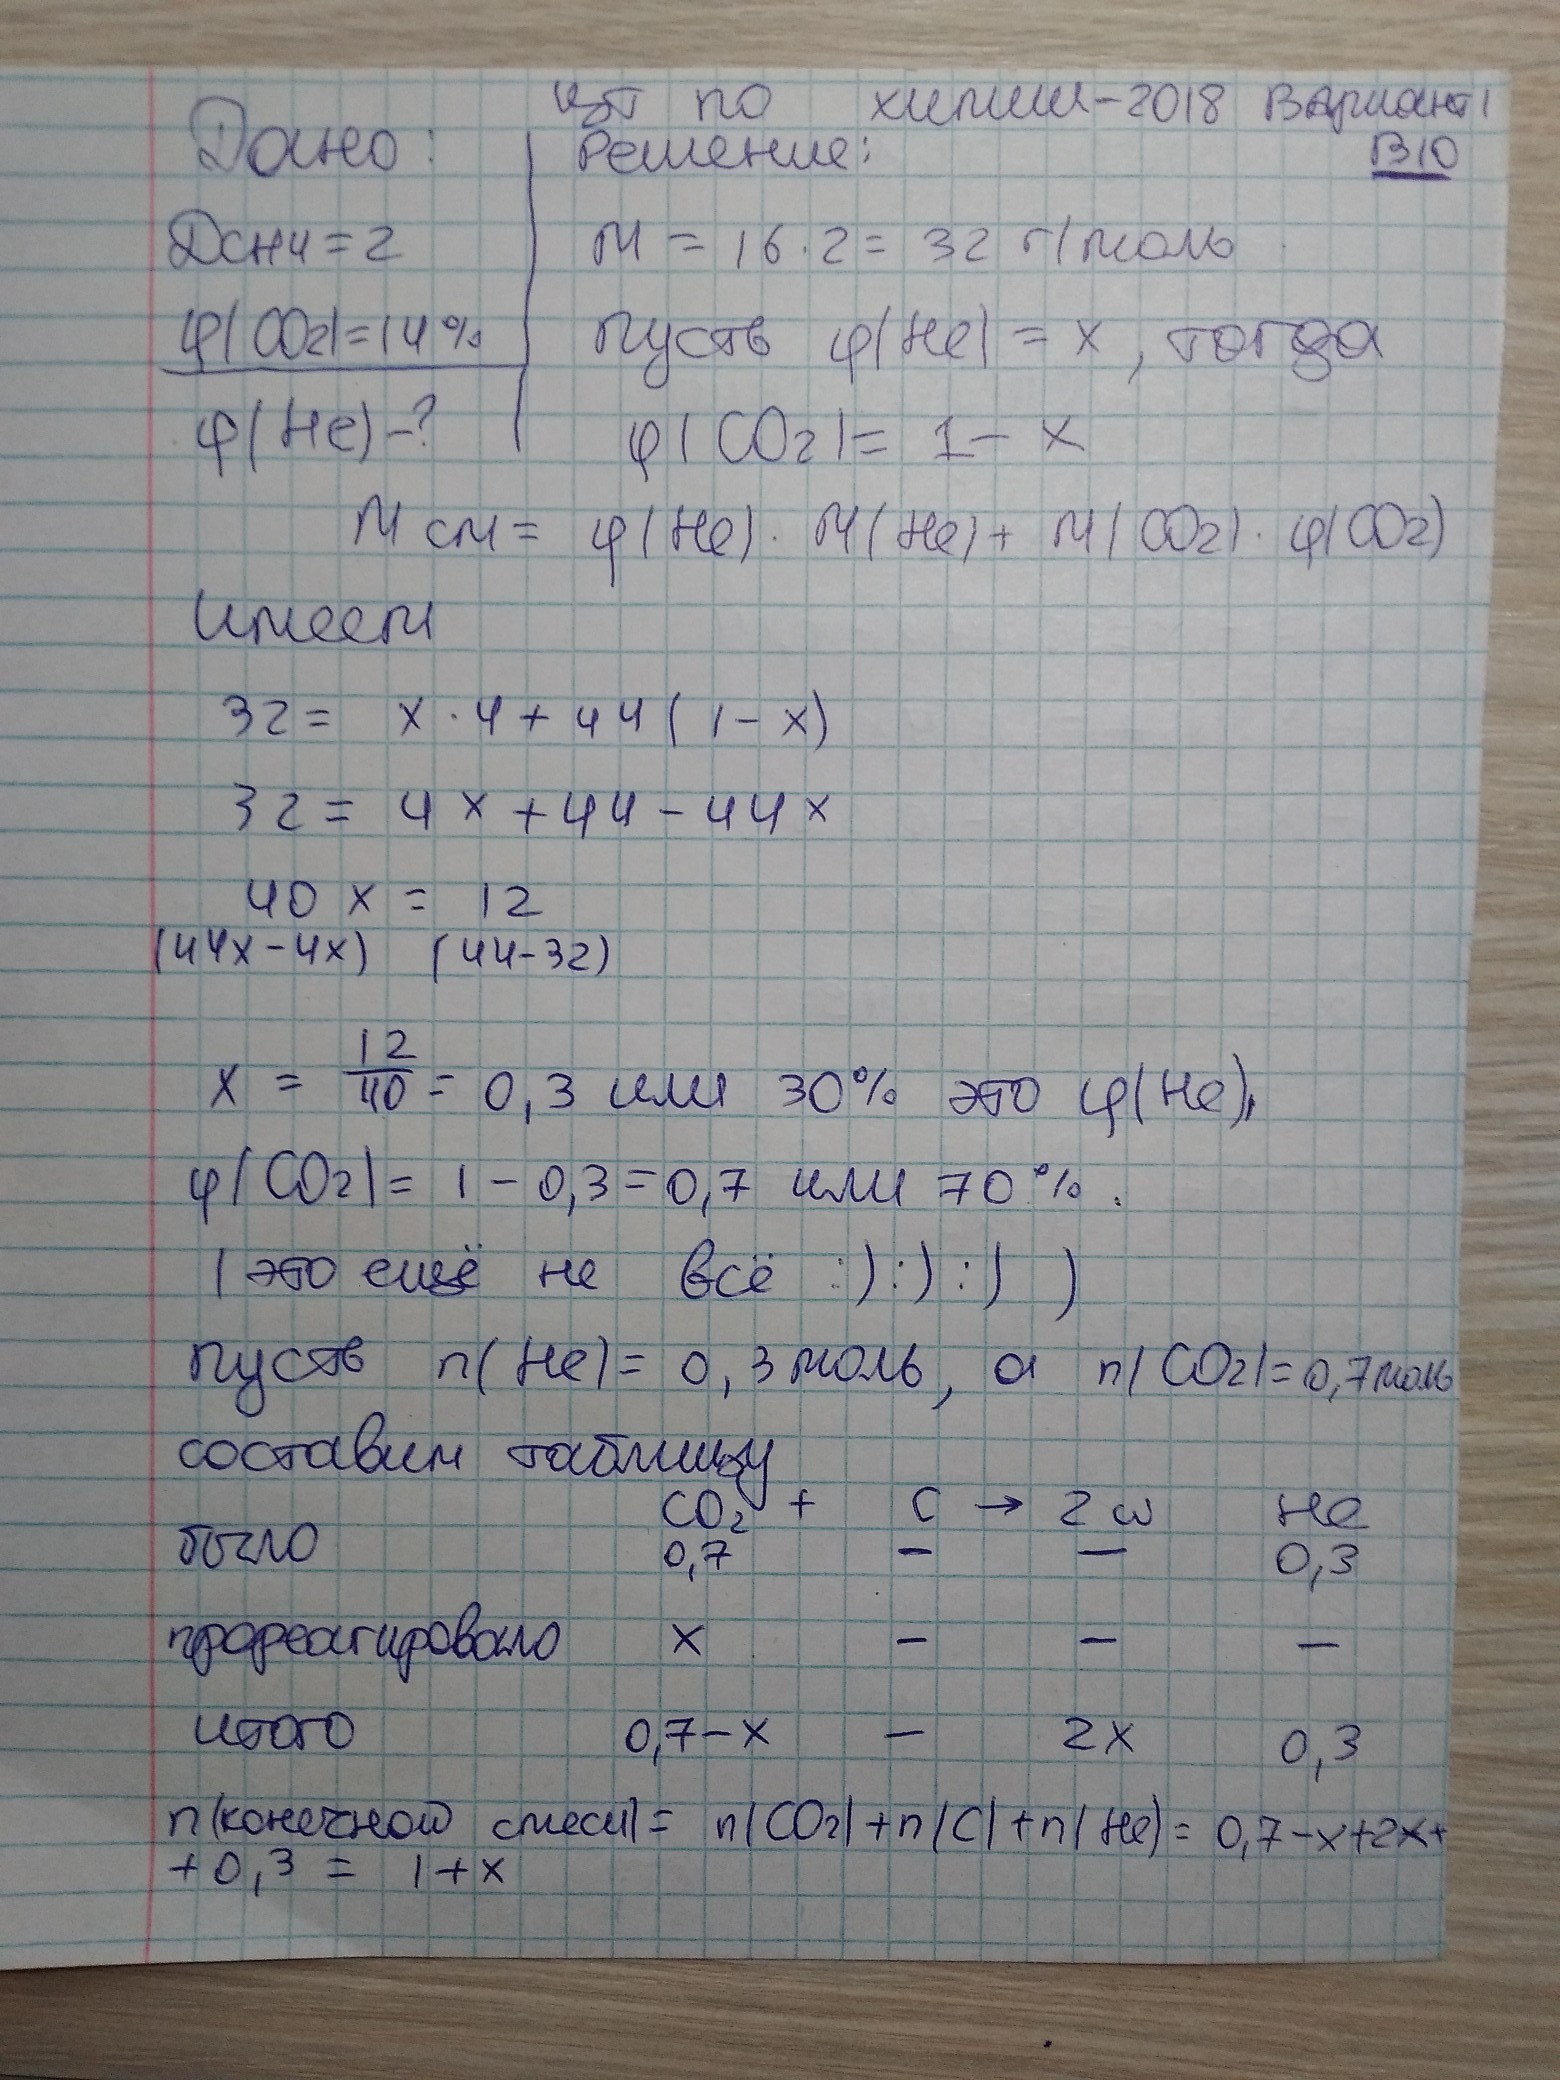 ЦТ по химии-2018 Вариант 1
Дано: Решение: B10
DCH4 = 2 M = 16·2 = 32 г/моль
φ(CO2) = 14% Пусть φ(He) = x, тогда
φ(He) - ? φ(CO2) = 1 - x
M см = φ(He) · M(He) + M(CO2) · φ(CO2)
Имеем
32 = x · 4 + 44 (1 - x)
32 = 4x + 44 - 44x
40x = 12
(44x - 4x) (44 - 32)
x = 12/40 = 0,3 или 30% это φ(He),
φ(CO2) = 1 - 0,3 = 0,7 или 70%.
(это ещё не всё :) :) :) )
Пусть n(He) = 0,3 моль, а n(CO2) = 0,7 моль
составим таблицу
CO2 + C → 2CO He
было 0,7 — — 0,3
прореагировало x — — —
итого 0,7-x — 2x 0,3
n(конечной смеси) = n(CO2) + n(C) + n(He) = 0,7 - x + 2x +
+ 0,3 = 1 + x